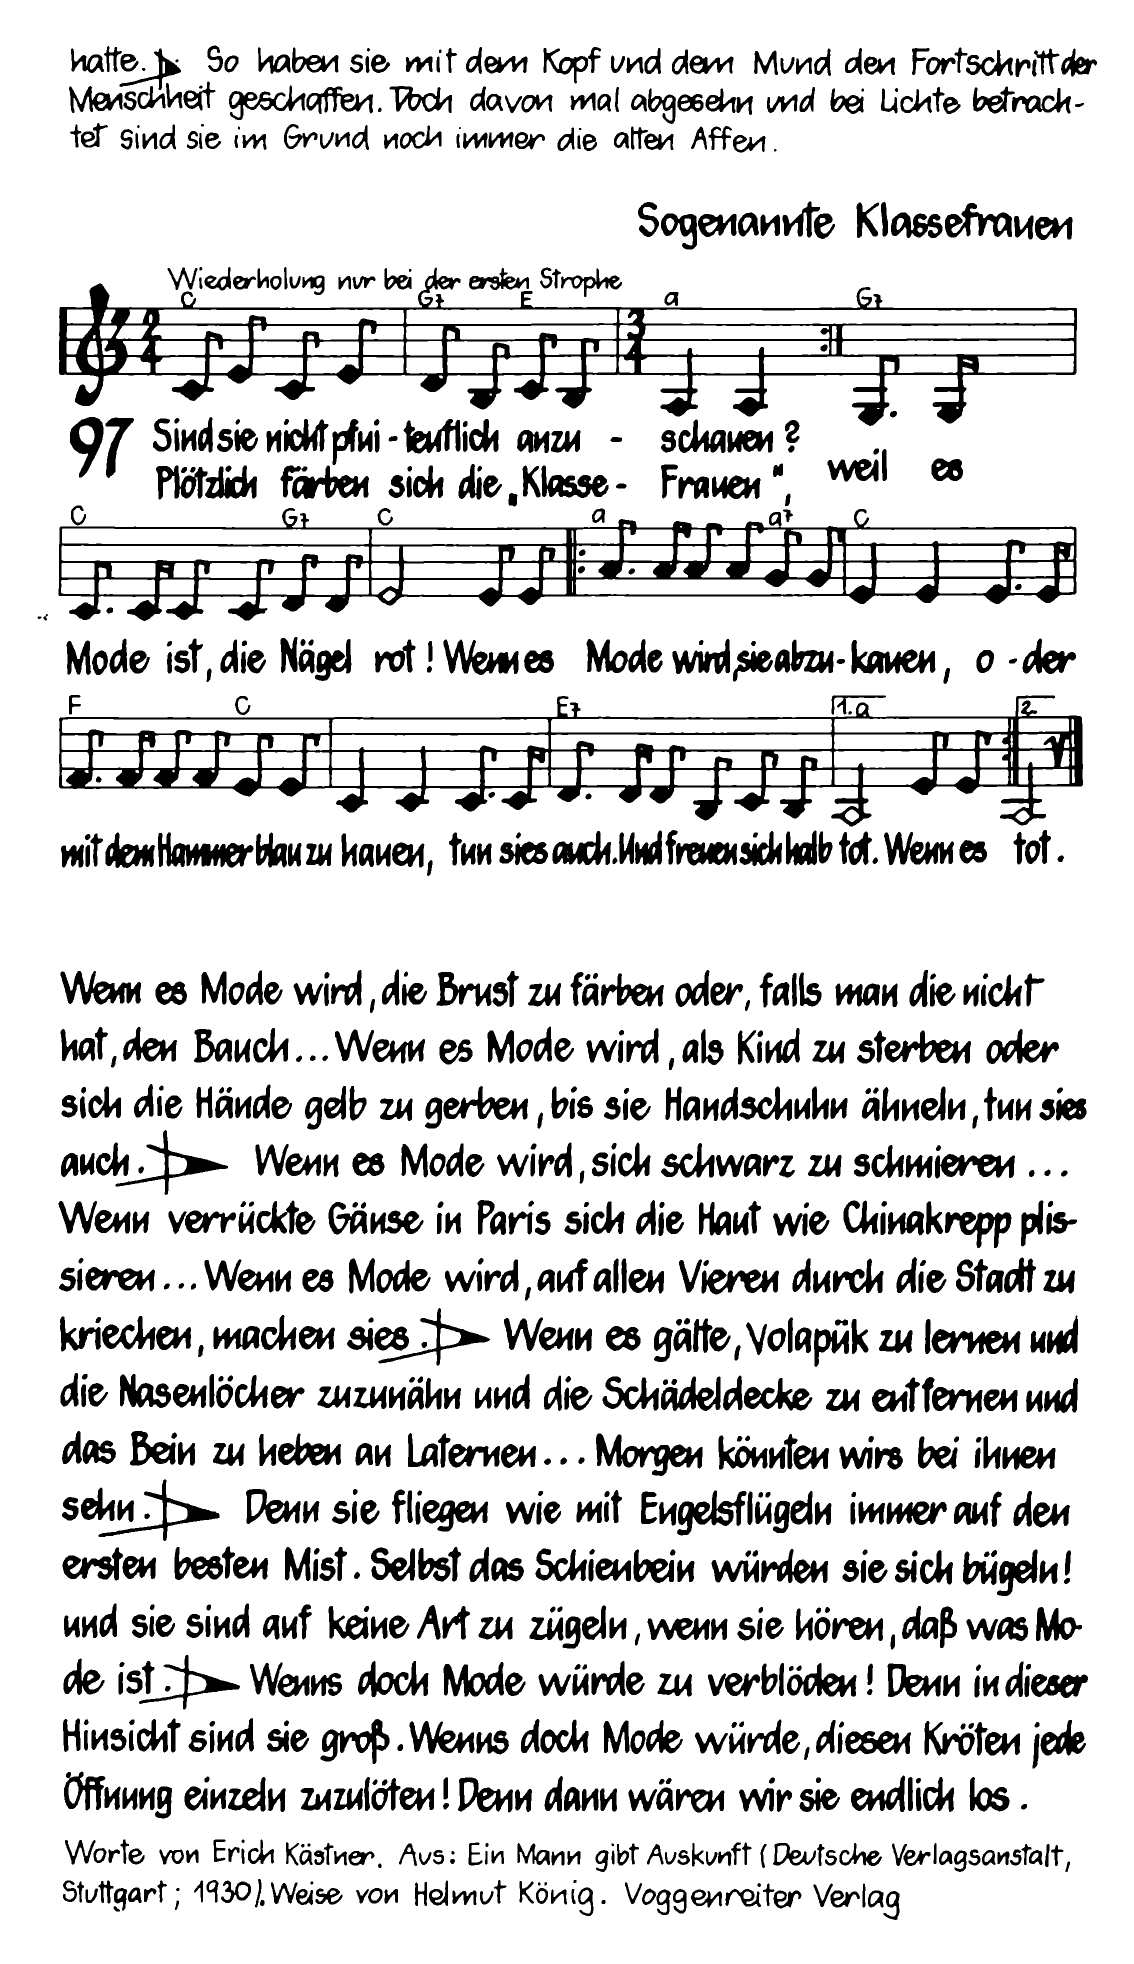 hatte. So haben sie mit dem Kopf und dem Mund den Fortschritt der
Menschheit geschaffen. Doch davon mal abgesehn und bei Lichte betrach-
tet sind sie im Grund noch immer die alten Affen.
Sogenannte Klassefrauen
Wiederholung nur bei der ersten Strophe
C G7 E a G7
2/4 3/4
97 Sind sie nicht pfui-teuflich anzu - schauen?
Plötzlich färben sich die „Klasse- Frauen", weil es
C G7 C a a7 C
Mode ist, die Nägel rot! Wenn es Mode wird, sie abzu-kauen, o-der
F C E7 1. a 2.
mit dem Hammer blau zu hauen, tun sies auch. Und freuen sich halb tot. Wenn es tot.
Wenn es Mode wird, die Brust zu färben oder, falls man die nicht
hat, den Bauch... Wenn es Mode wird, als Kind zu sterben oder
sich die Hände gelb zu gerben, bis sie Handschuhn ähneln, tun sies
auch. Wenn es Mode wird, sich schwarz zu schmieren...
Wenn verrückte Gänse in Paris sich die Haut wie Chinakrepp plis-
sieren... Wenn es Mode wird, auf allen Vieren durch die Stadt zu
kriechen, machen sies. Wenn es gälte, Volapük zu lernen und
die Nasenlöcher zuzunähn und die Schädeldecke zu entfernen und
das Bein zu heben an Laternen... Morgen könnten wirs bei ihnen
sehn. Denn sie fliegen wie mit Engelsflügeln immer auf den
ersten besten Mist. Selbst das Schienbein würden sie sich bügeln!
und sie sind auf keine Art zu zügeln, wenn sie hören, daß was Mo-
de ist. Wenns doch Mode würde zu verblöden! Denn in dieser
Hinsicht sind sie groß. Wenns doch Mode würde, diesen Kröten jede
Öffnung einzeln zuzulöten! Denn dann wären wir sie endlich los.
Worte von Erich Kästner. Aus: Ein Mann gibt Auskunft (Deutsche Verlagsanstalt,
Stuttgart; 1930). Weise von Helmut König. Voggenreiter Verlag